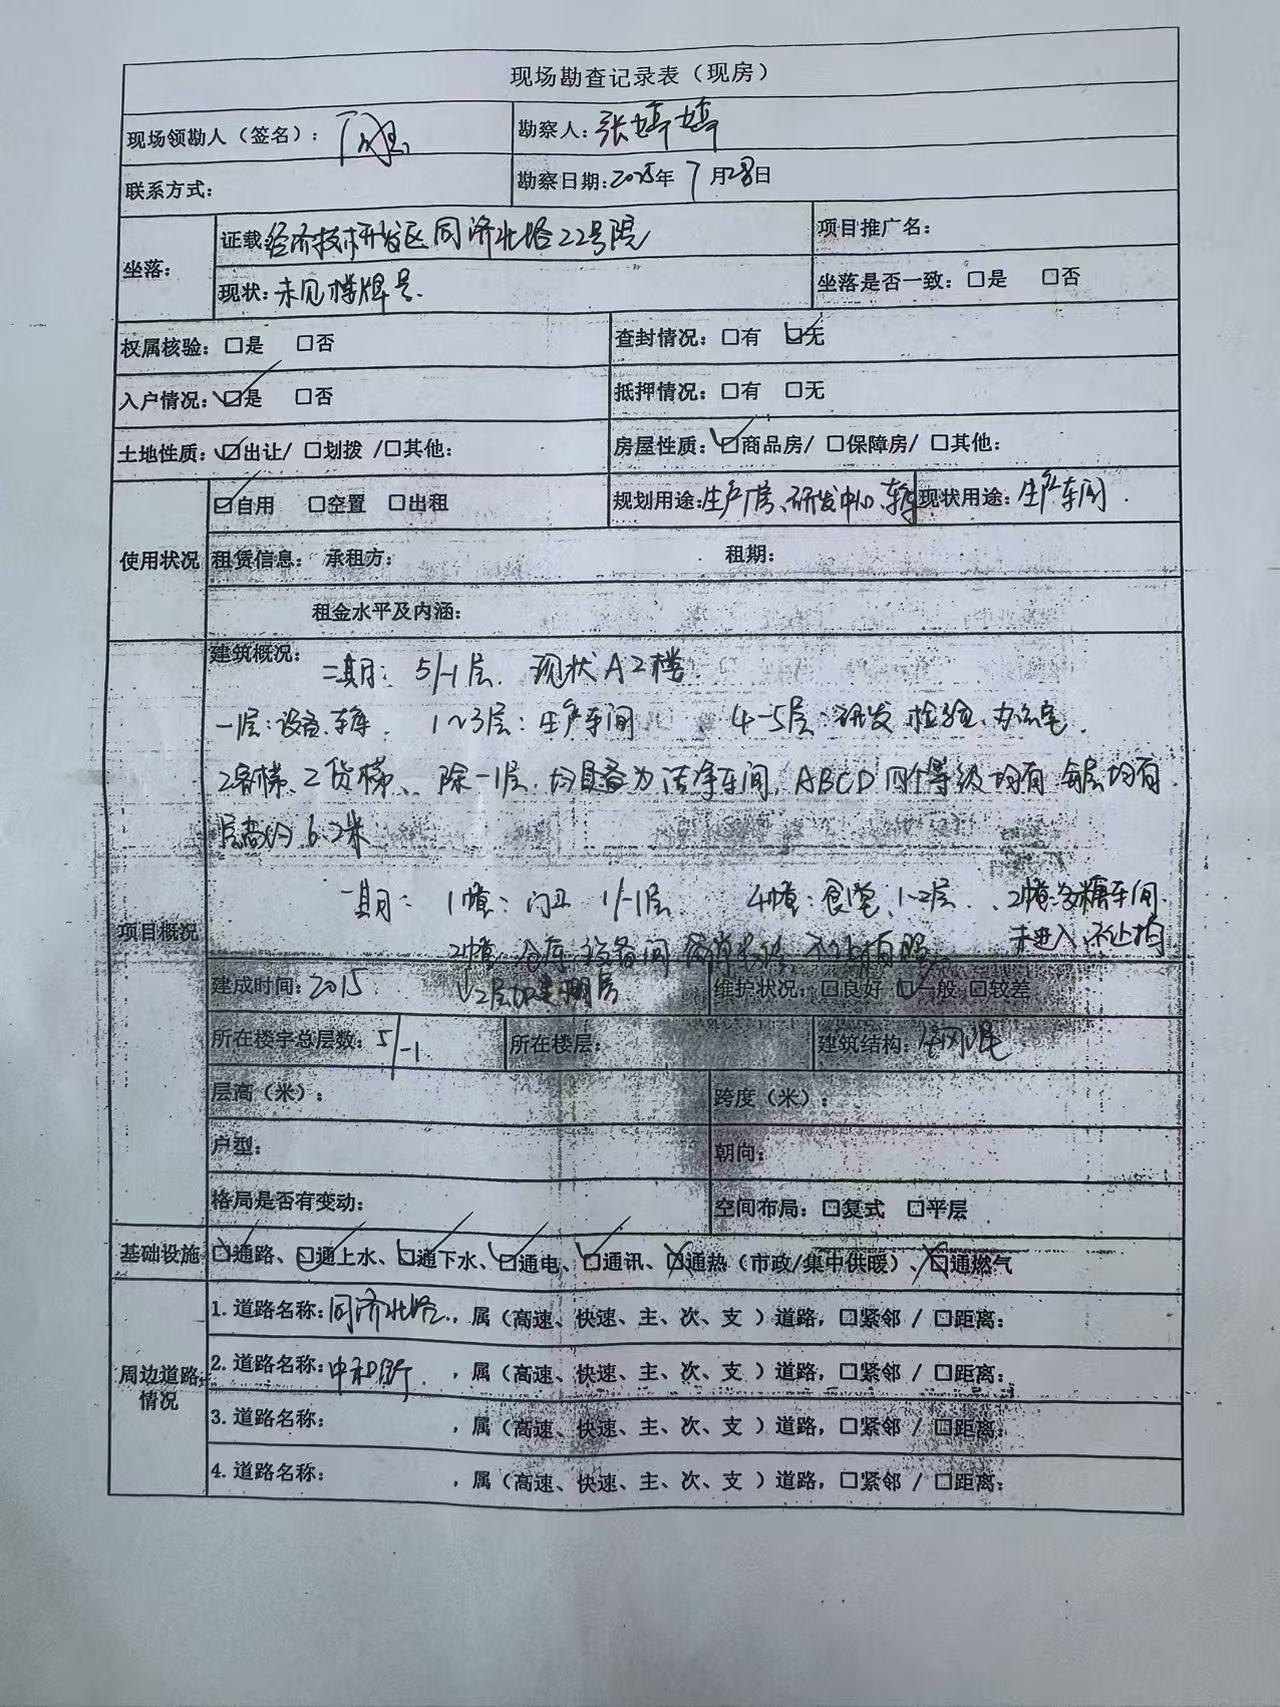 现场勘查记录表（现房）
现场领勘人（签名）： 勘察人：张婷婷
联系方式： 勘察日期：2025年 7月28日
坐落： 证载 经济技术开发区同济北路22号院 项目推广名：
现状：未见楼牌号. 坐落是否一致：□是 □否
权属核验：□是 □否 查封情况：□有 ☑无
入户情况：☑是 □否 抵押情况：□有 □无
土地性质：☑出让/ □划拨 /□其他： 房屋性质：☑商品房/ □保障房/ □其他：
使用状况 ☑自用 □空置 □出租 规划用途：生产厂房、研发中心、车库 现状用途：生产车间.
租赁信息： 承租方： 租期：
租金水平及内涵：
项目概况 建筑概况： 二期： 5/-1层. 现状A2楼
-1层：设备、车库. 1~3层：生产车间 4-5层：研发、检验、办公室.
2客梯、2货梯、 除-1层，均具备为洁净车间，ABCD四个等级均有 每层均有.
层高约6.2米
一期： 1幢：门卫 1/-1层. 4幢：食堂、1-2层. 2幢：车间.
3幢：仓库 设备间 未进入，不让拍
建成时间：2015 维护状况：□良好 ☑一般 □较差
所在楼宇总层数：5/-1 所在楼层： 建筑结构：钢混
层高（米）： 跨度（米）：
户型： 朝向：
格局是否有变动： 空间布局：□复式 □平层
基础设施 ☑通路、☑通上水、☑通下水、☑通电、☑通讯、☒通热（市政/集中供暖）、☒通燃气
周边道路情况 1. 道路名称：同济北路.，属（高速、快速、主、次、支 ）道路，□紧邻 / □距离：
2. 道路名称：中和街. ，属（高速、快速、主、次、支 ）道路，□紧邻 / □距离：
3. 道路名称： ，属（高速、快速、主、次、支 ）道路，□紧邻 / □距离：
4. 道路名称： ，属（高速、快速、主、次、支 ）道路，□紧邻 / □距离：